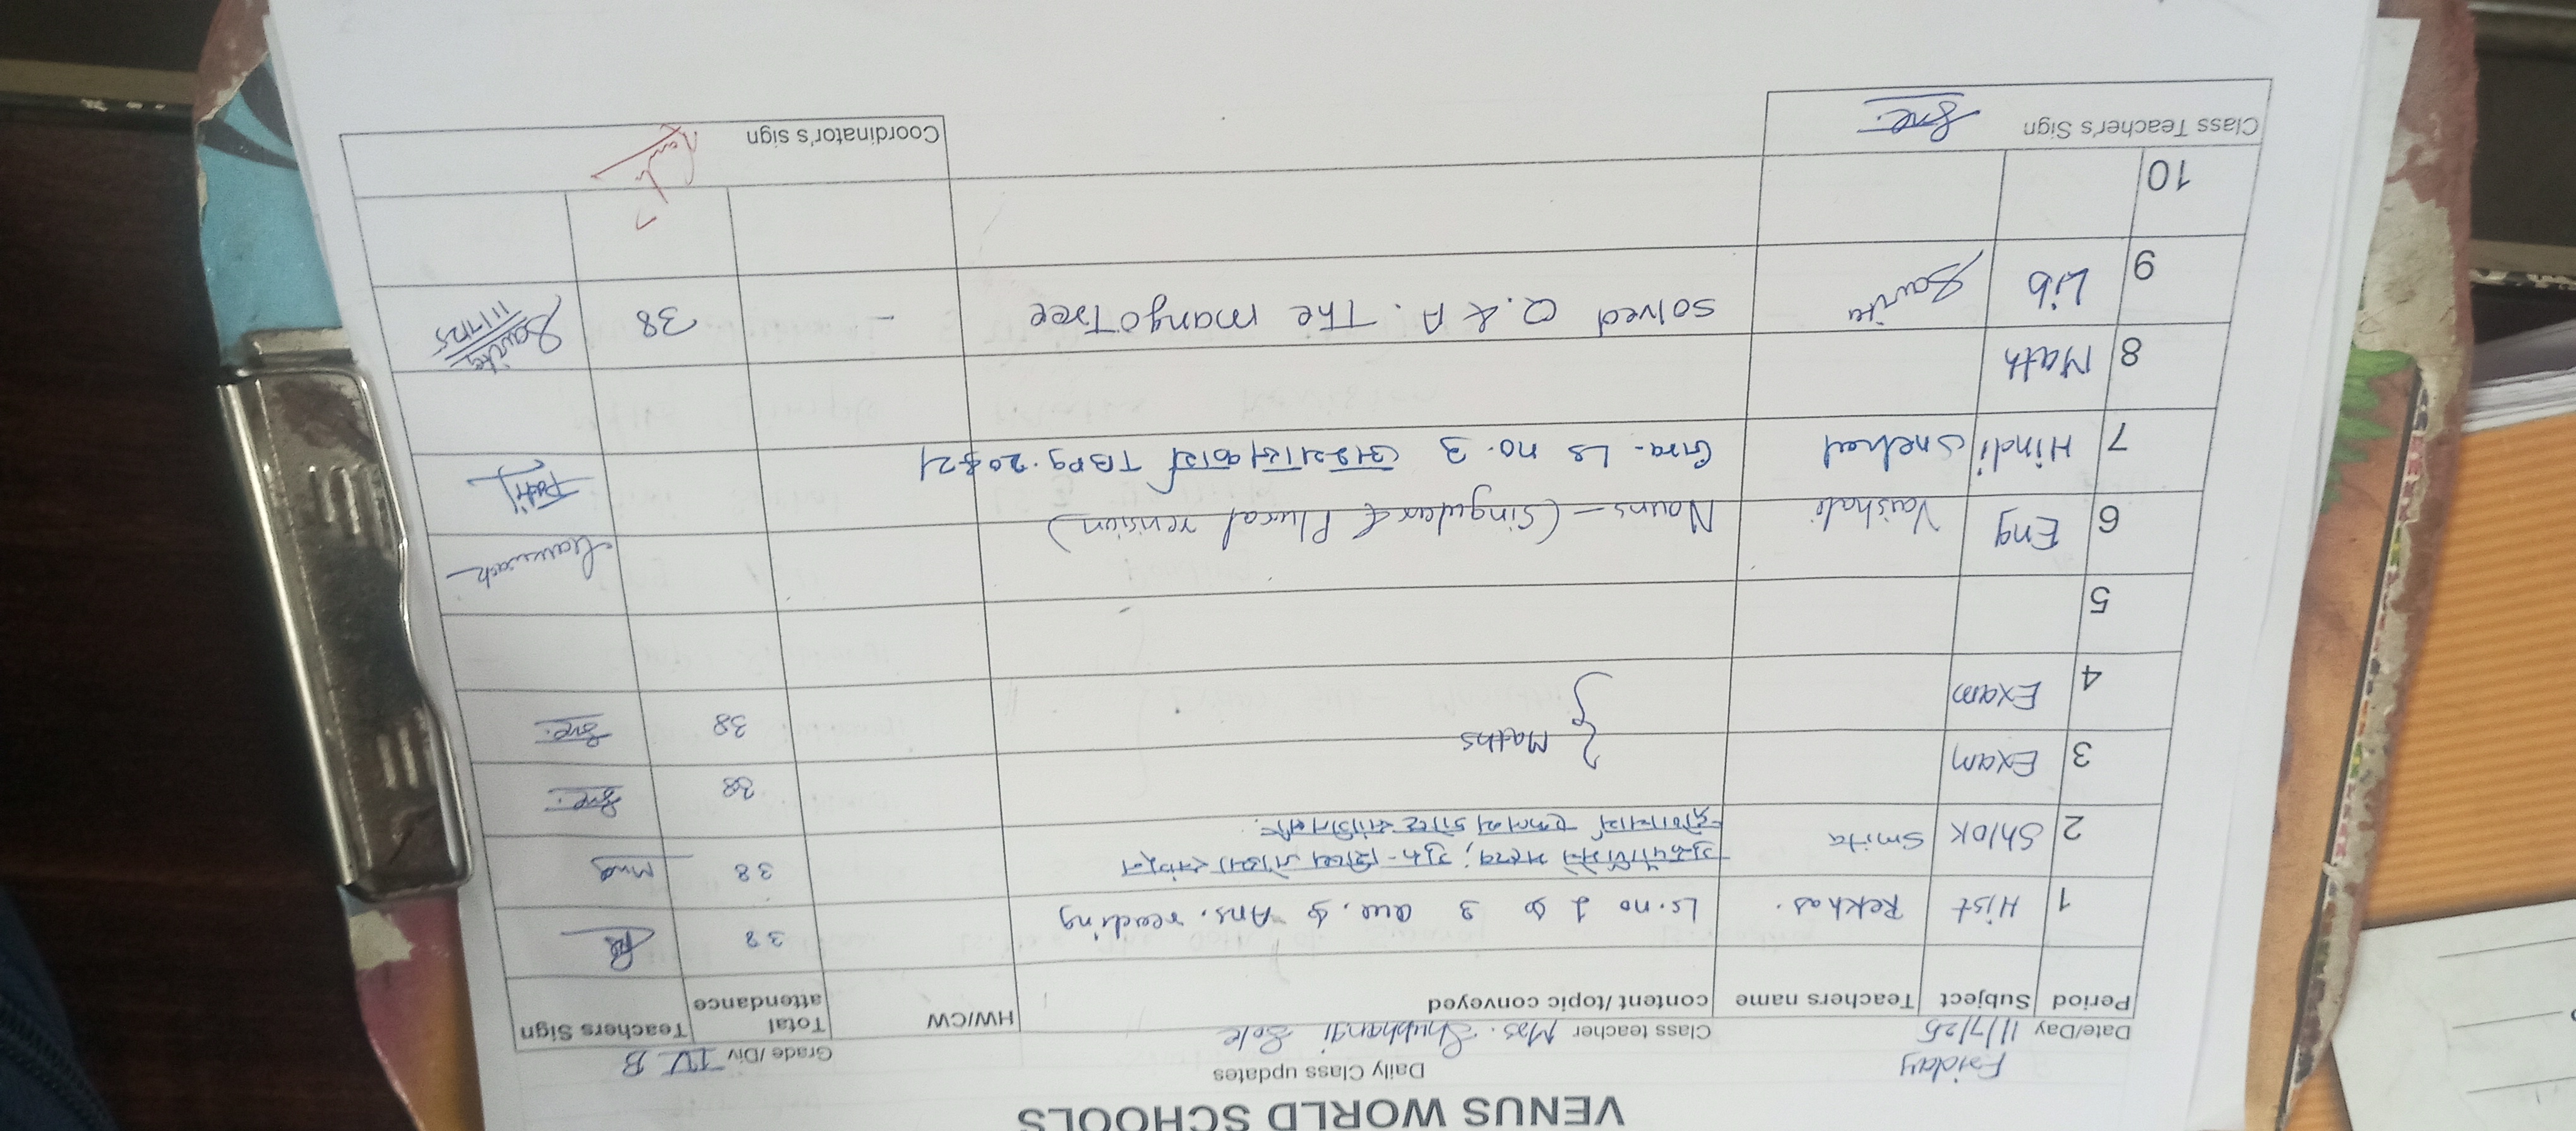 VENUS WORLD SCHOOLS
Daily Class updates
Friday
Date/Day 11/7/25 Class teacher Mrs. Shubhangi Grade/Div IV B
Period Subject Teachers name content/topic conveyed HW/CW Total attendance Teachers Sign
1 Hist Rekha s. Ls. no 1 to 3 que. & Ans. reading 38
2 Shlok Smita 38
3 Exam Maths 38
4 Exam 38
5
6 Eng Vaishali Nouns – (Singular & Plural revision)
7 Hindi Snehal Gra. Ls no. 3 TB Pg. 20 & 21 Patil
8 Math
9 Lib Savita Solved Q. & A. The mango Tree - 38 Savita 11/7/25
10
Class Teacher's Sign Coordinator's sign